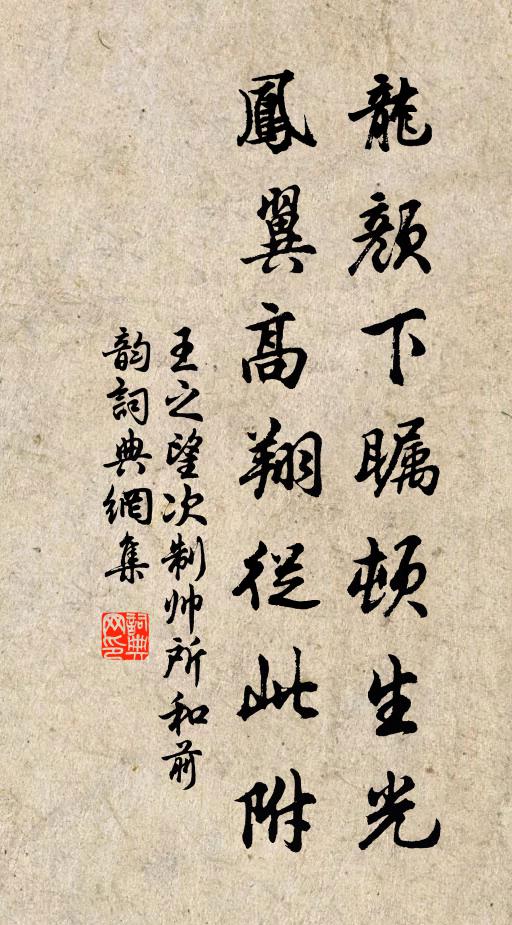 龍顏下瞩頓生光
鳳翼高翔從此附
王之望次制帅所和前
韵詞典網集
詞典网印